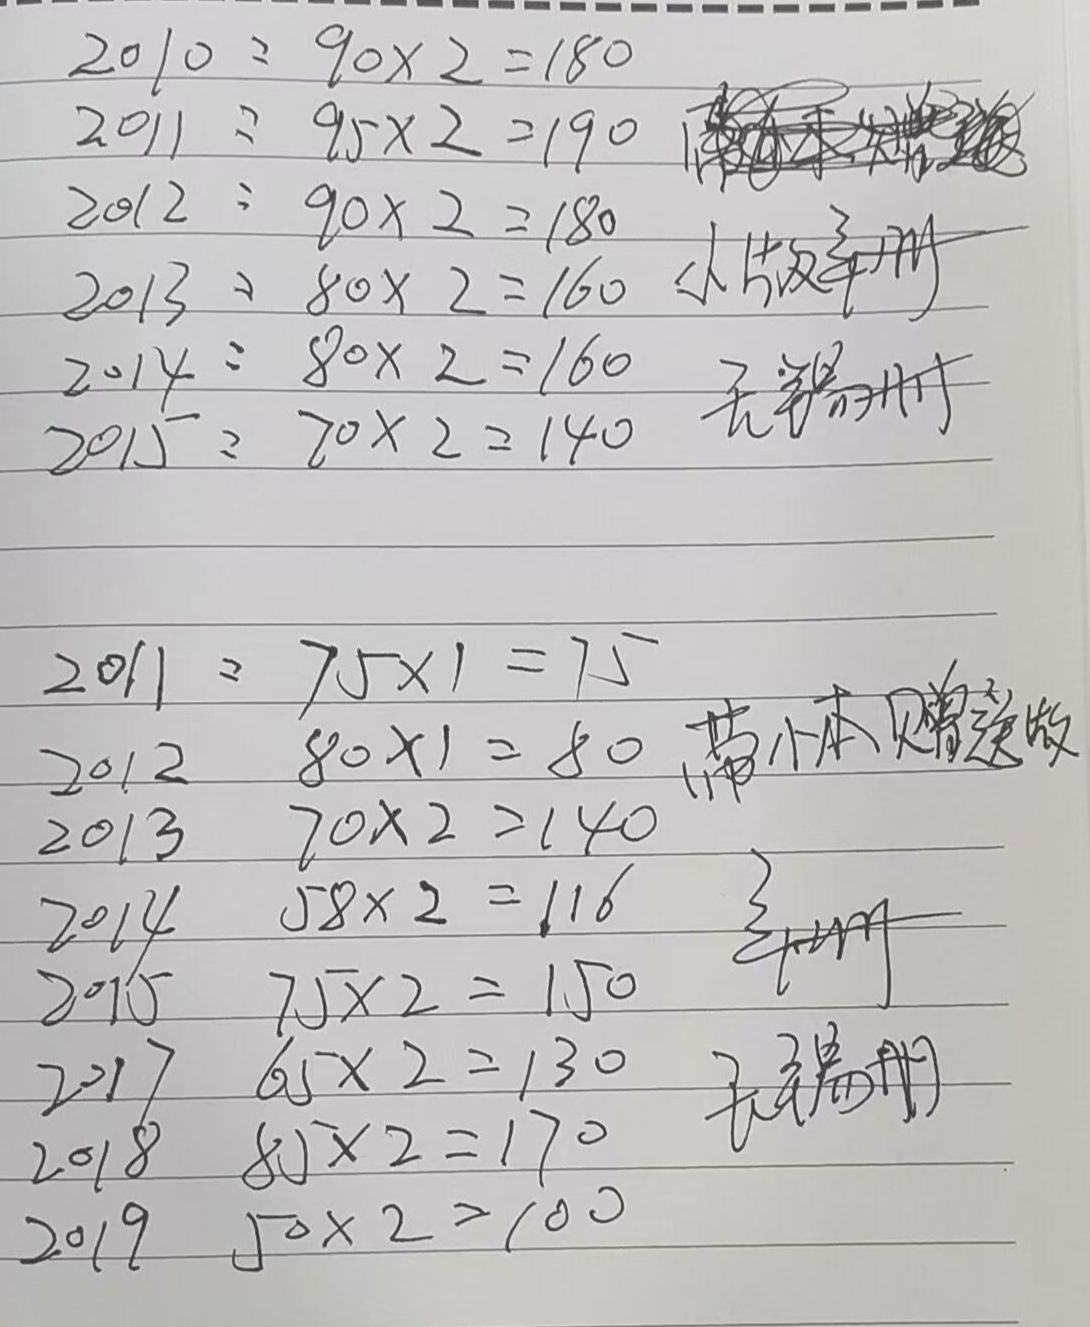 2010: 90×2=180
2011: 95×2=190
2012: 90×2=180
2013: 80×2=160 小版年册
2014: 80×2=160
2015: 70×2=140 册
2011: 75×1=75
2012 80×1=80 带小本赠送版
2013 70×2=140
2014 58×2=116
年册
2015 75×2=150
2017 65×2=130 册
2018 85×2=170
2019 50×2=100